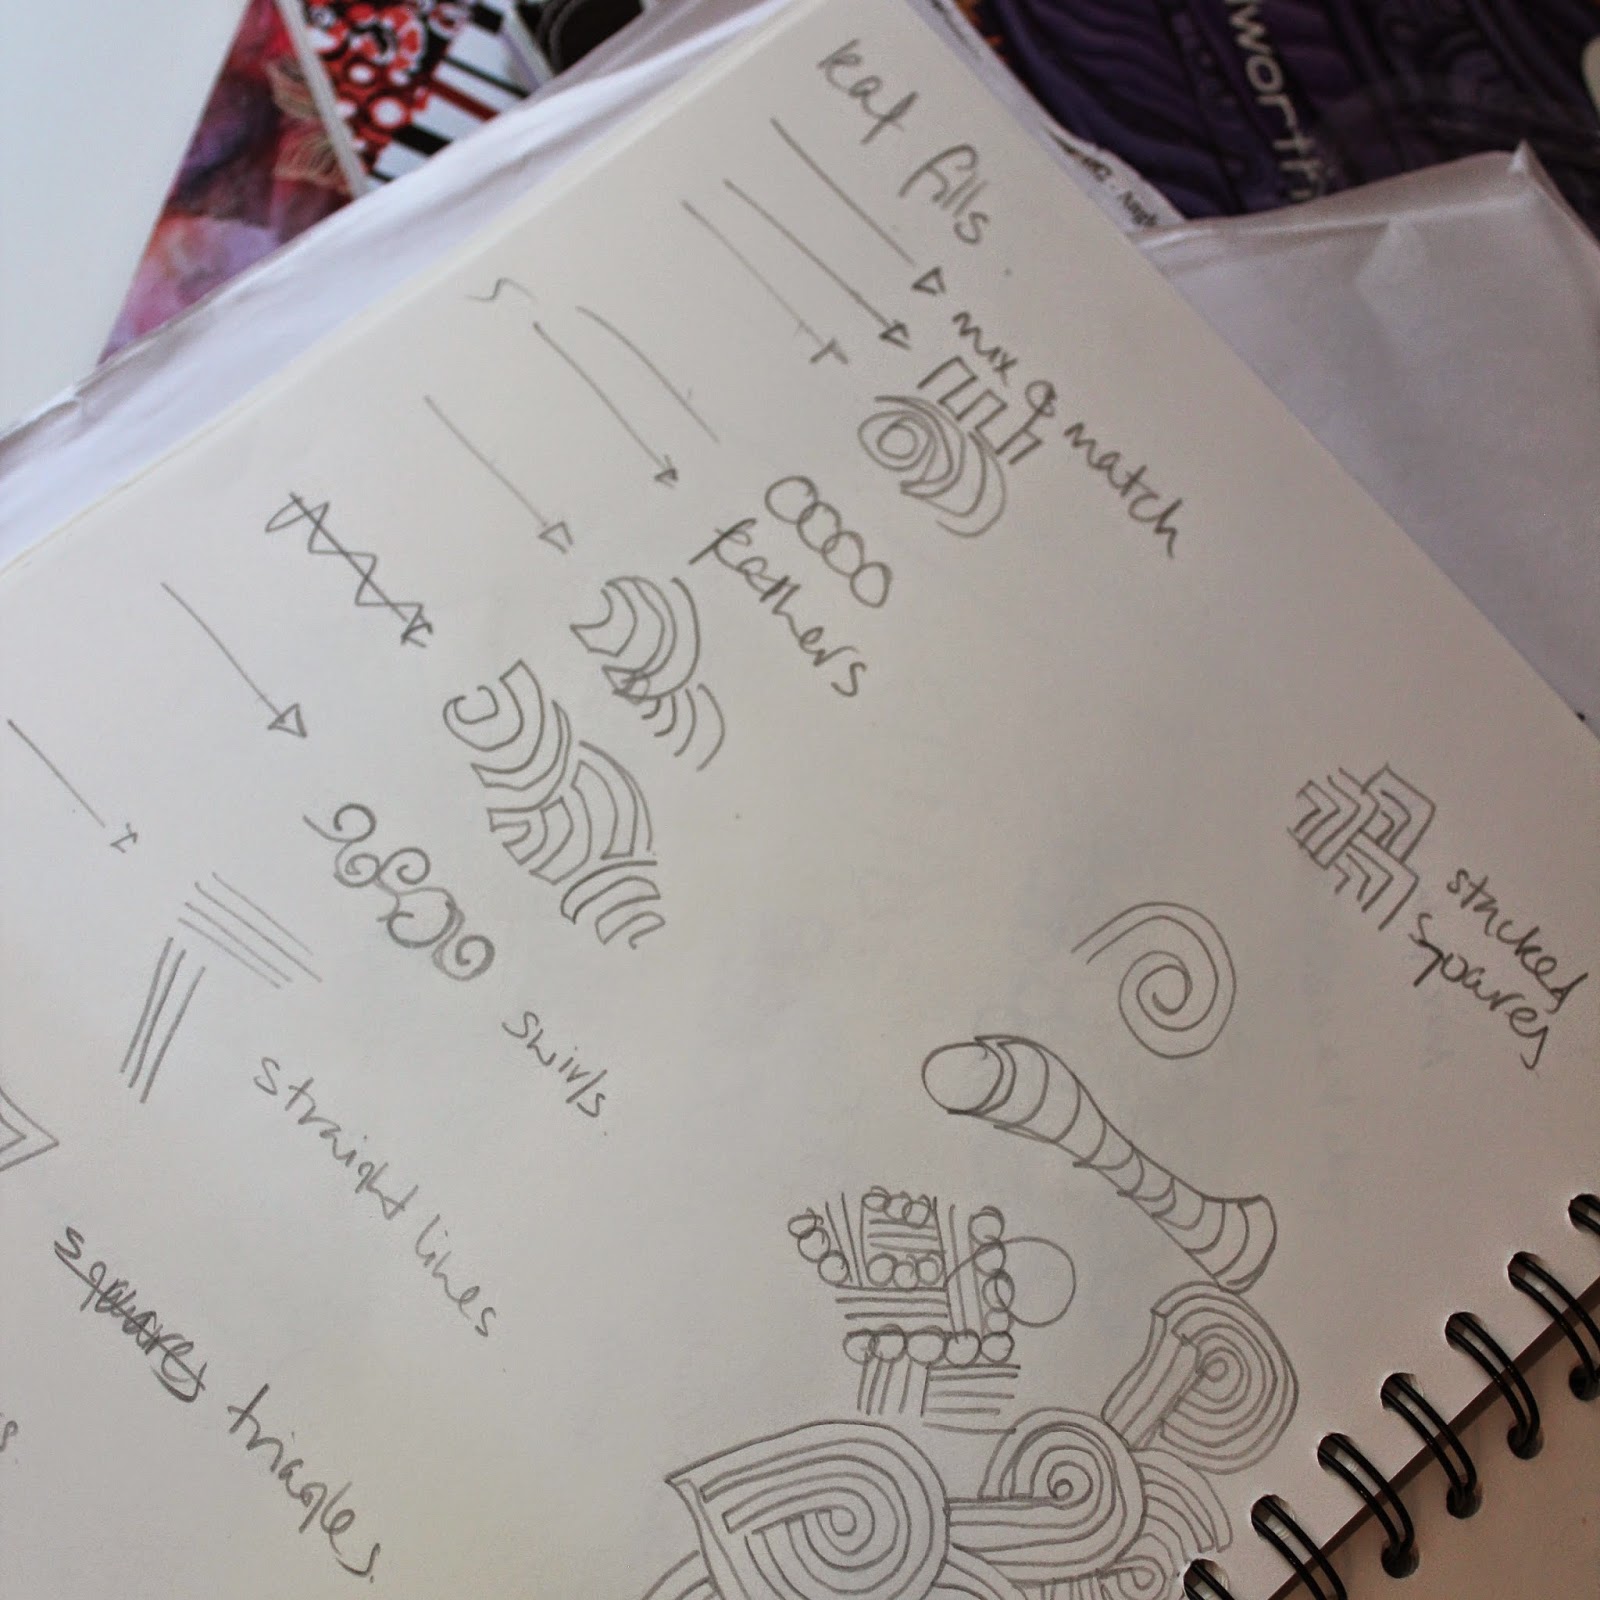 fills.
mix & match
feathers
swirls.
straight lines
squares triagles.
stacked
squares